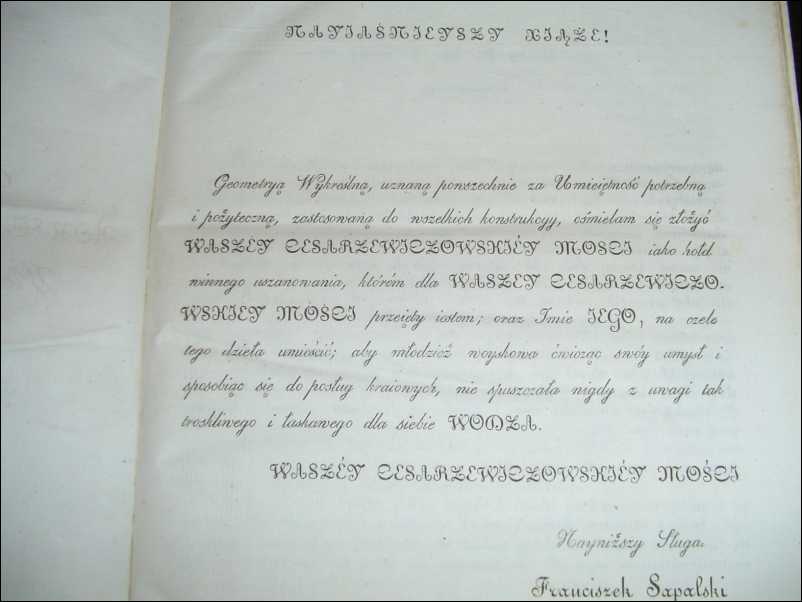 NAYIAŚNIEYSZY XIĄŻE!
Geometryą Wykreślną, uznaną powszechnie za Umieiętność potrzebną
i pożyteczną, zastosowaną do wszelkich konstrukcyy, ośmielam się złożyć
WASZEY CESARZEWICZOWSKIÉY MOSCI iako hołd
winnego uszanowania, którém dla WASZEY CESARZEWICZO-
WSKIEY MOŚCI przeięty iestem; oraz Imie IEGO, na czele
tego dzieła umieścić; aby młodzież woyskowa ćwicząc swóy umysł i
sposobiąc się do posług kraiowych, nie spuszczała nigdy z uwagi tak
troskliwego i łaskawego dla siebie WODZA.
WASZÉY CESARZEWICZOWSKIÉY MOŚCI
Nayniższy Sługa.
Franciszek Sapalski